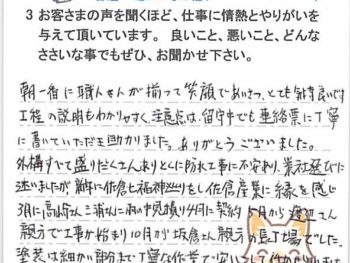 3 お客さまの声を聞くほど、仕事に情熱とやりがいを
与えて頂いています。 良いこと、悪いこと、どんな
ささいな事でもぜひ、お聞かせ下さい。
朝一番に職人さんが揃って笑顔であいさつ、とても気持良いです
工程の説明もわかりやすく、注意点は、留守中でも連絡票に丁寧
に書いていただき助かりました。ありがとうございました。
外構すべて盛りだくさん、ありとくに防水工事に不安あり、業社選びに
迷いましたが 新に佐倉七福神巡りをし佐倉産業に縁を感じ
3月に高崎さん三浦さんに雨の中見積り4月に契約 5月から渡辺さん
親方で工事が始まり10月が坂倉さん親方の長丁場でした。
塗装は細かい部分まで丁寧な作業で安心して